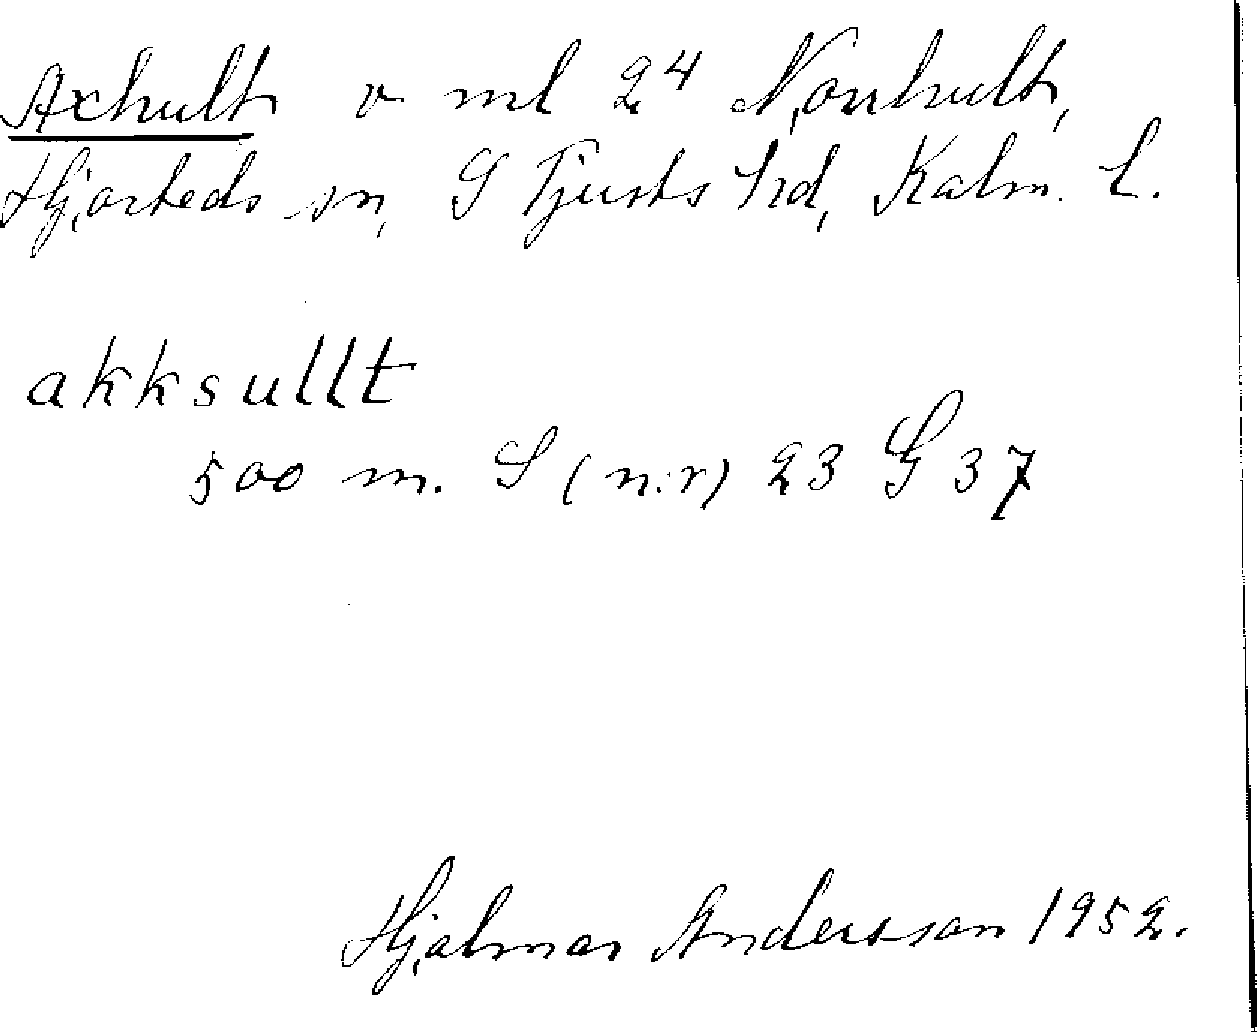 Axhult v ml 2⁴ Norrhult,
Hjorteds sn, S Tjusts hd, Kalm. L.
akksullt
500 m. S (n:r) 23 G 37
Hjalmar Andersson 1952.